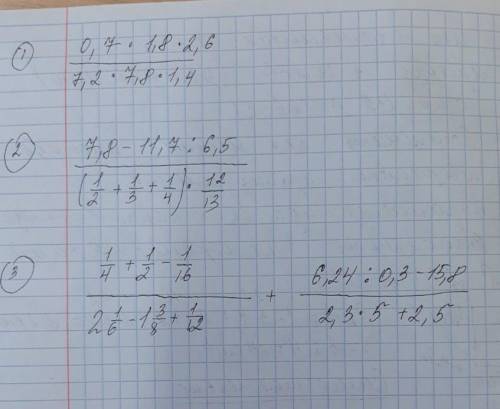 ① 0,7 · 1,8 · 2,6
7,2 · 7,8 · 1,4
② 7,8 - 11,7 : 6,5
(1/2 + 1/3 + 1/4) · 12/13
③ 1/4 + 1/2 - 1/16
2 1/6 - 1 3/8 + 1/12
+
6,24 : 0,3 - 15,8
2,3 · 5 + 2,5